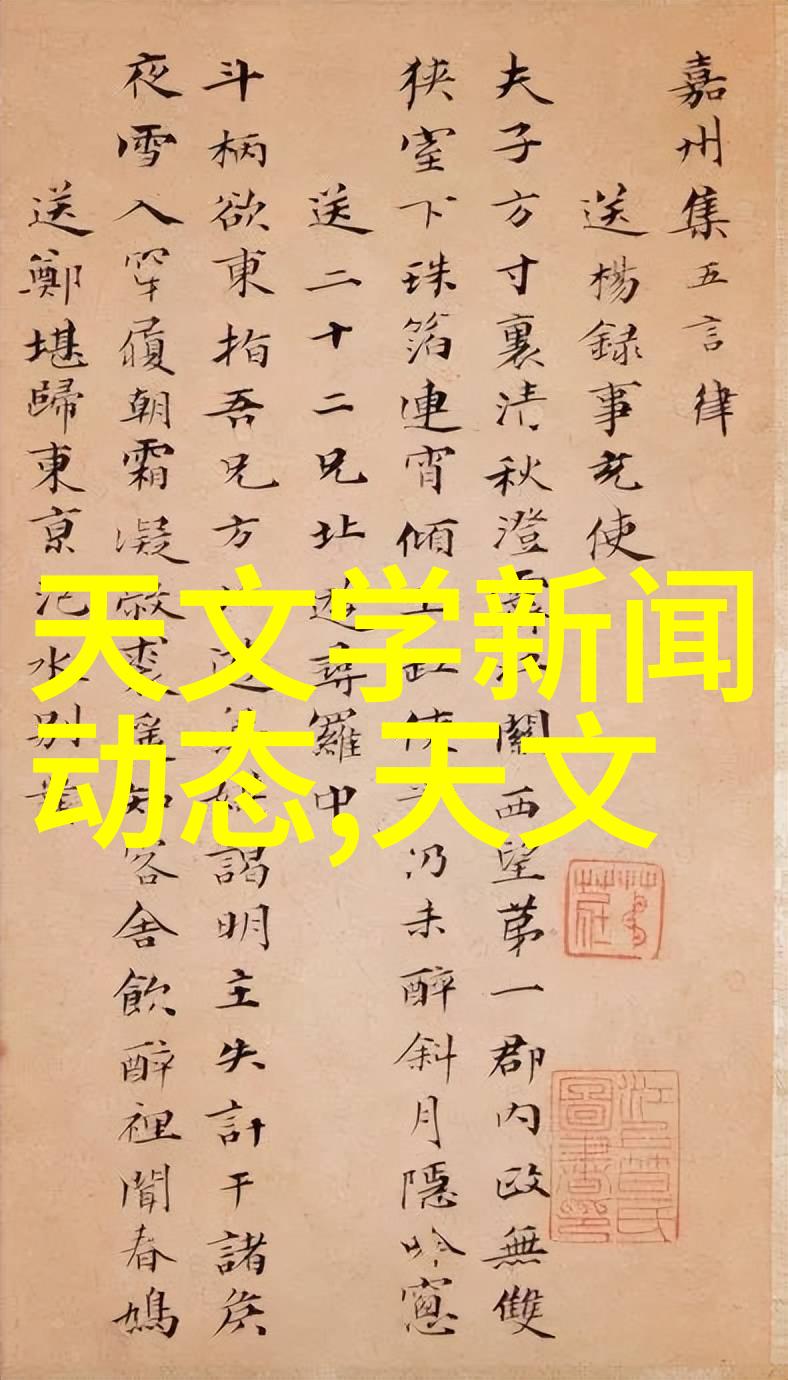 嘉州集五言律
送楊録事充使
夫子方寸裏清秋澄霽江關西望第一郡内政無雙
狹室下珠箔連宵傾玉缸使乎仍未醉斜月隱吟窻
送二十二兄北遊尋羅中
斗柄欲東指吾兄方謁明主失計干諸矦
夜雪入穿履朝霜凝敝裘遥知客舍飲醉裡聞春鳩
送鄭堪歸東京汜水別
天文学新闻
动态,天文